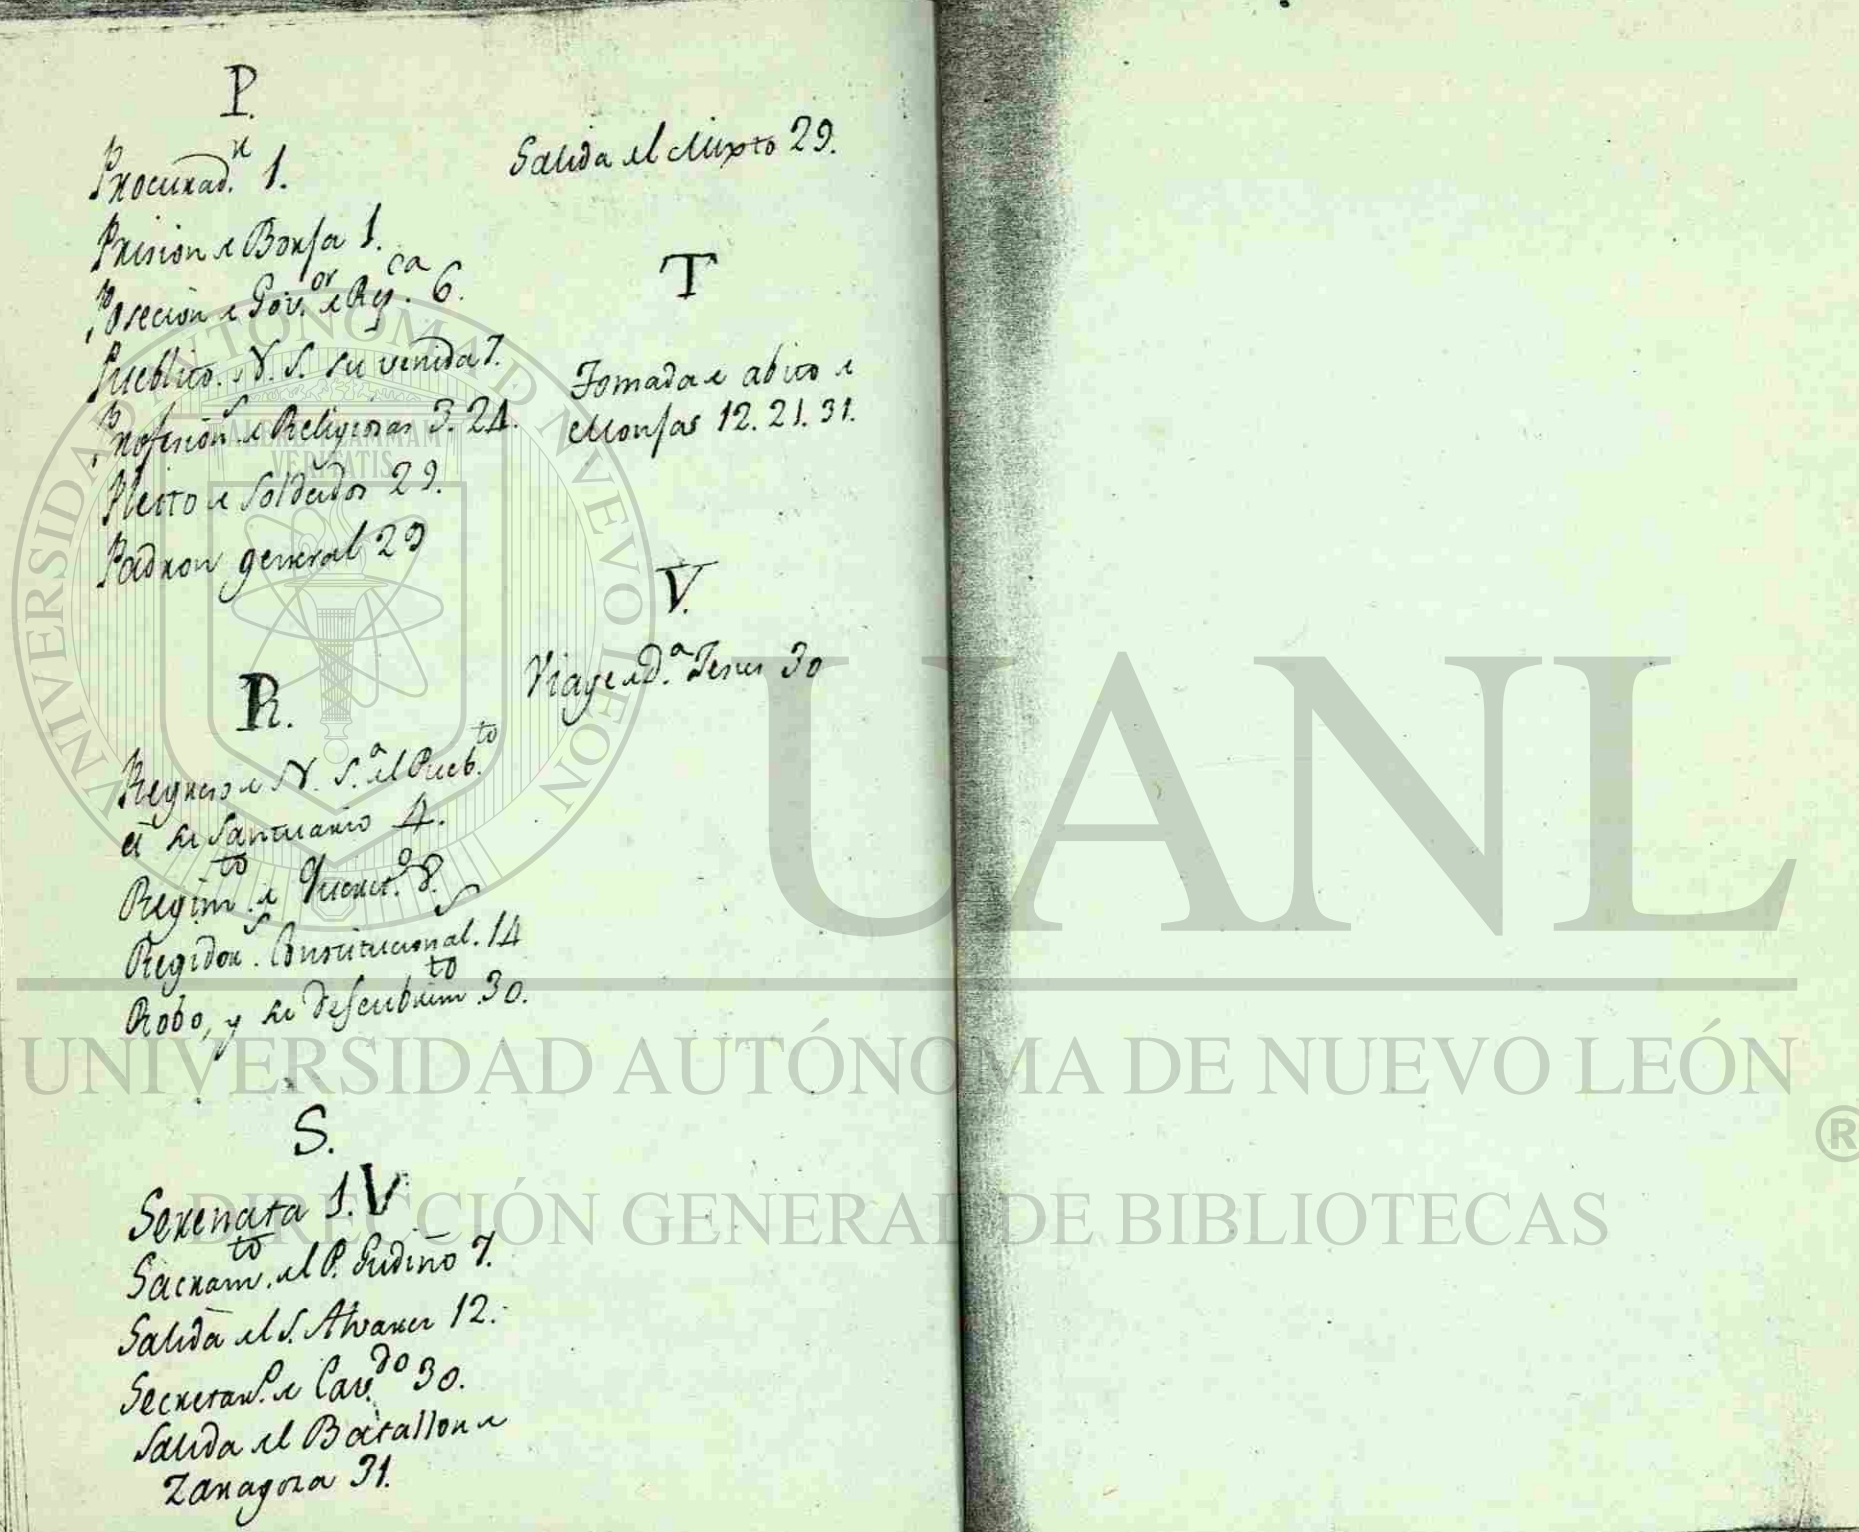 P.
Procurad.r 1.
Prision de Borja 1.
Poseción de Gov.or de Rej.ca 6.
Pueblito. N. S. su venida 7.
Profesión.s de Religiosas 3. 24.
Pleito de Soldados 29.
Padron general 29
R.
Regreso de N. S.a del Pueb.to
á su Santuario 4.
Regim.to de Queret.o 8.
Regidor.s Constitucional.s 14
Robo, y su descubrim.to 30.
S.
Serenata 1. V
Sacram.to del P. Gudiño 7.
Salida del S. Alvarez 12.
Secretar.o de Cav.do 30.
Salida del Batallon de
Zaragoza 31.
Salida del Mixto 29.
T
Tomada de abito de
Monjas 12. 21. 31.
V.
Viage de D.a Jesus 30
UNIVERSIDAD AUTÓNOMA DE NUEVO LEÓN
ALERE FLAMMAM
VERITATIS
UANL
UNIVERSIDAD AUTÓNOMA DE NUEVO LEÓN
®
DIRECCIÓN GENERAL DE BIBLIOTECAS